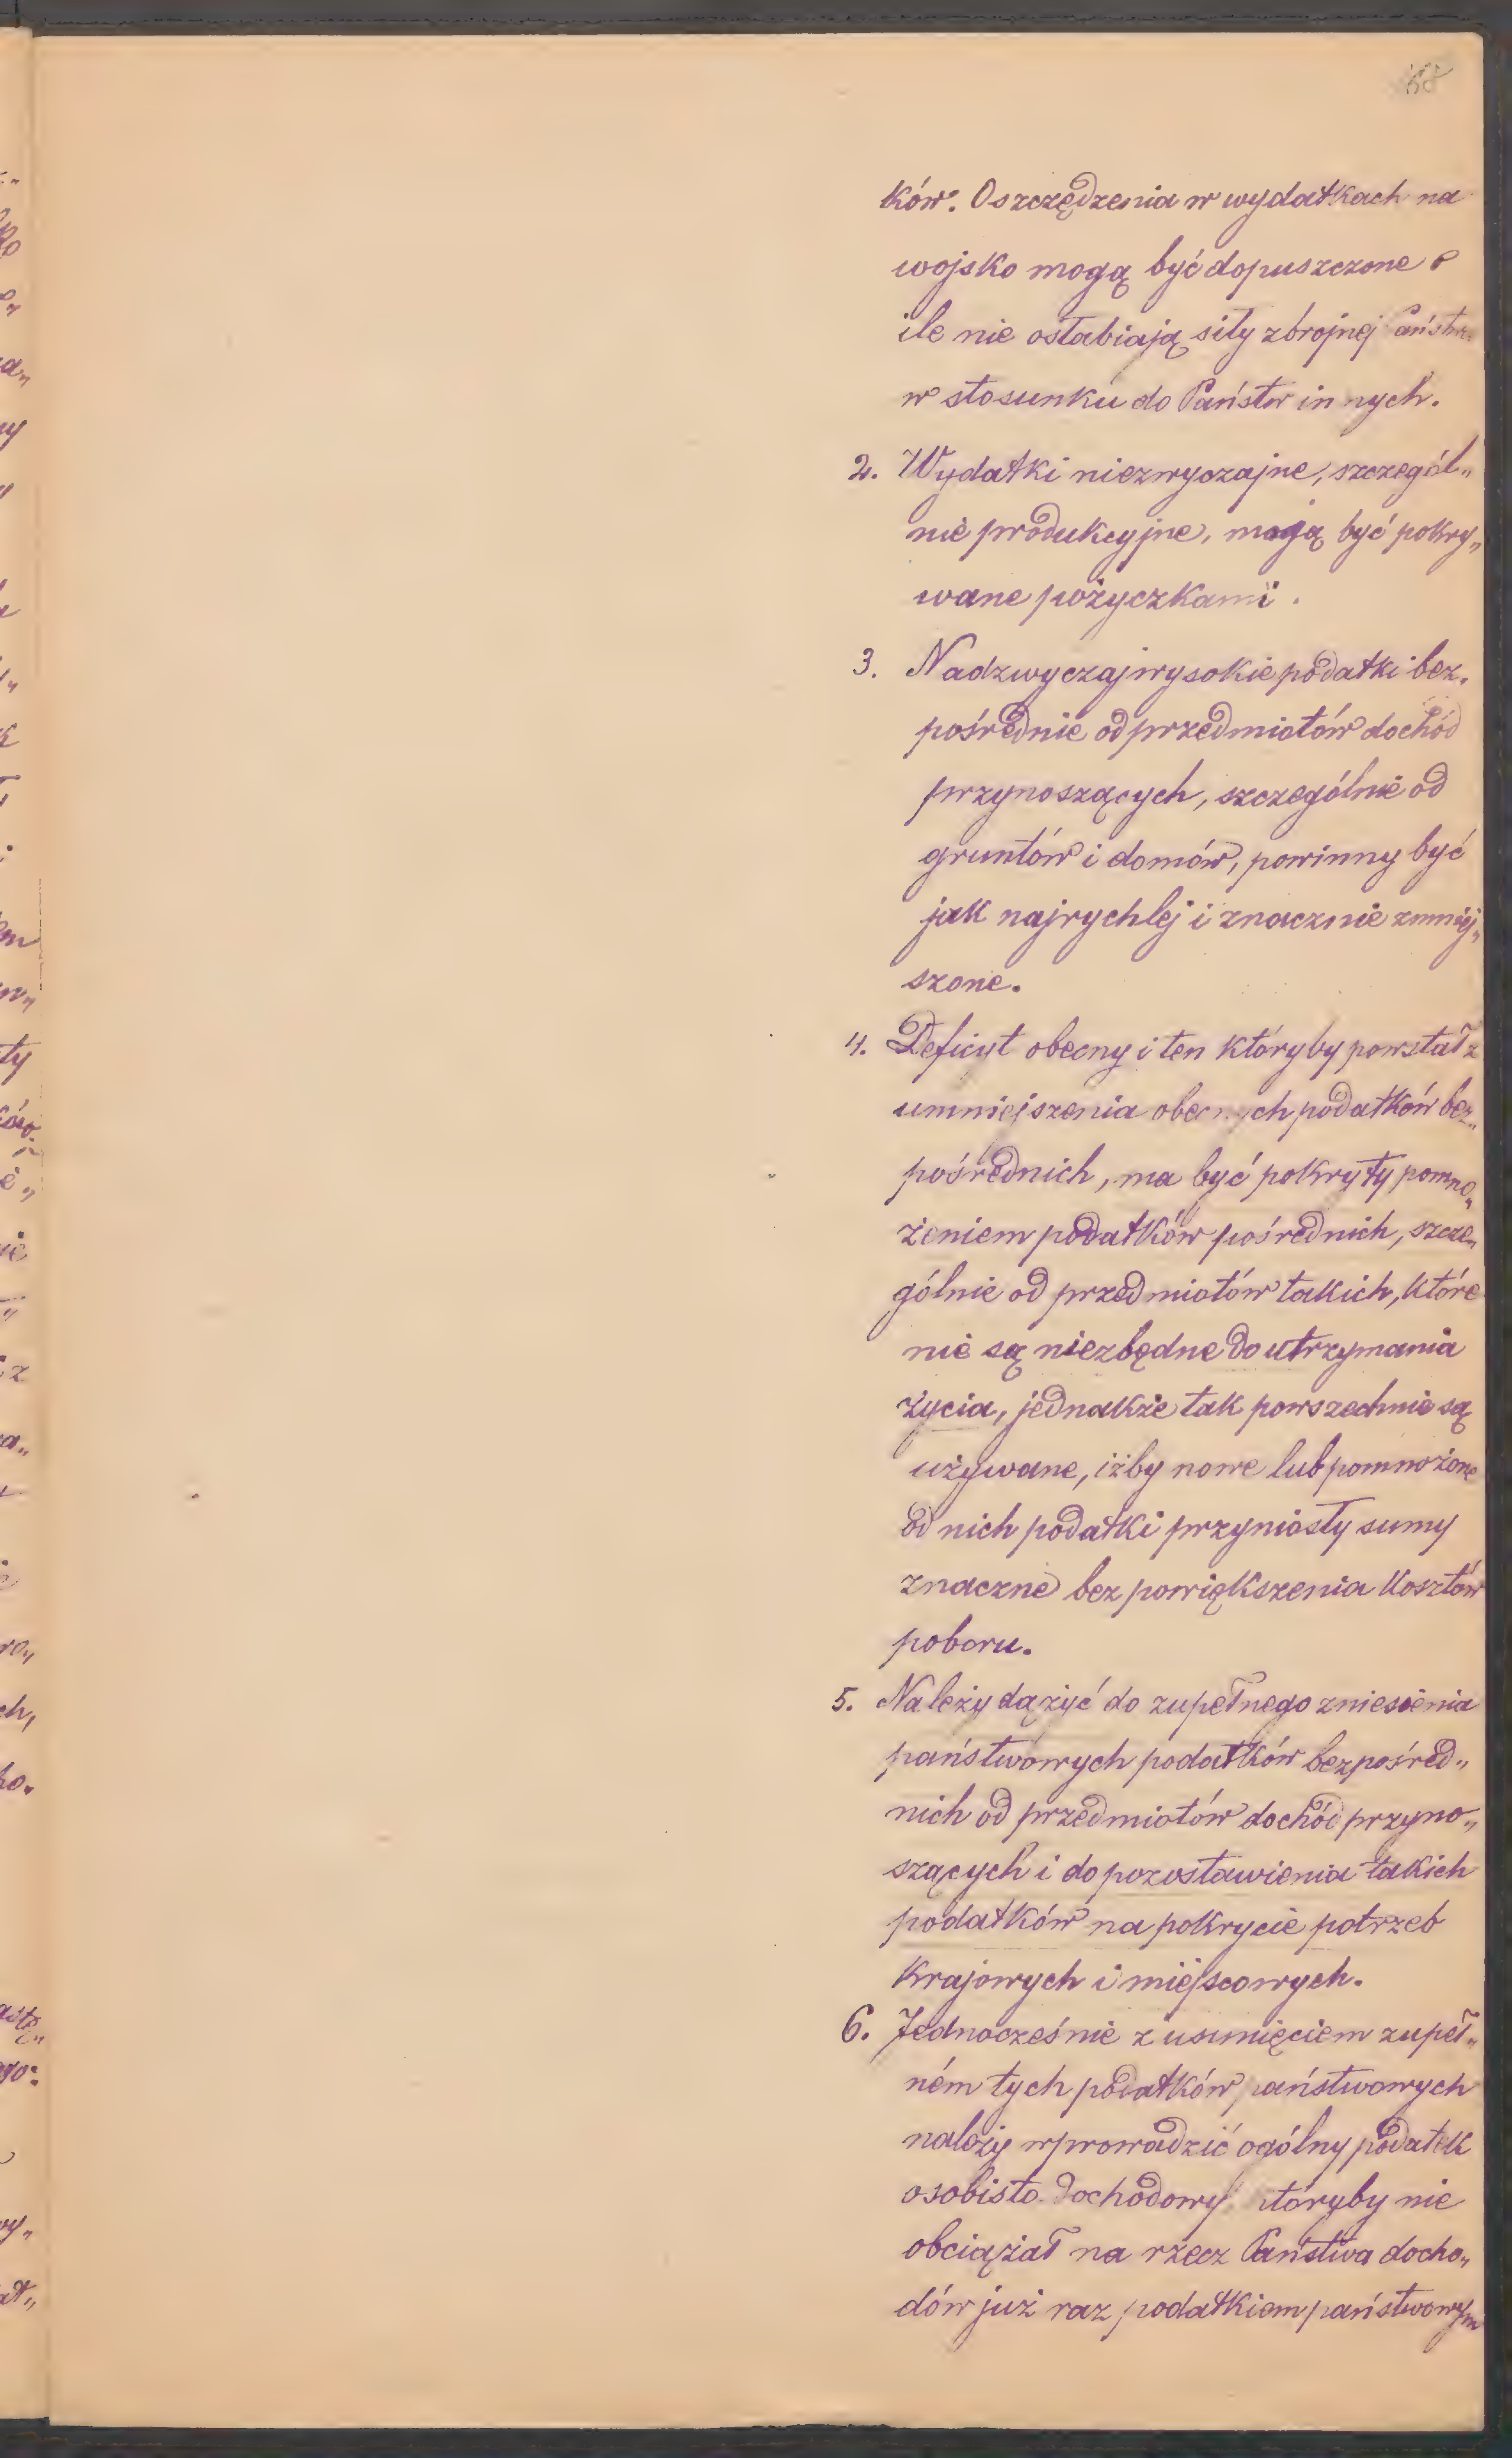 58
ków. Oszczędzenia w wydatkach na
wojsko mogą być dopuszczone o
ile nie osłabiają siły zbrojnej Państwa
w stosunku do Państw innych.
2. Wydatki niezwyczajne, szczegól„
nie produkcyjne, mogą być pokry„
wane pożyczkami.
3. Nadzwyczaj wysokie podatki bez„
pośrednie od przedmiotów dochód
przynoszących, szczególnie od
gruntów i domów, powinny być
jak najrychlej i znacznie zmniej„
szone.
4. Deficyt obecny i ten któryby powstał z
umniejszenia obecnych podatków bez„
pośrednich, ma być pokryty pomno„
żeniem podatków pośrednich, szcze„
gólnie od przedmiotów takich, które
nie są niezbędne do utrzymania
życia, jednakże tak powszechnie są
używane, iżby nowe lub pomnożone
od nich podatki przyniosły sumy
znaczne bez powiększenia kosztów
poboru.
5. Należy dążyć do zupełnego zniesienia
państwowych podatków bezpośred„
nich od przedmiotów dochód przyno„
szących i do pozostawienia takich
podatków na pokrycie potrzeb
krajowych i miejscowych.
6. Jednocześnie z usunięciem zupeł„
ném tych podatków państwowych
należy wprowadzić ogólny podatek
osobisto-dochodowy któryby nie
obciążał na rzecz Państwa docho„
dów już raz podatkiem państwowym